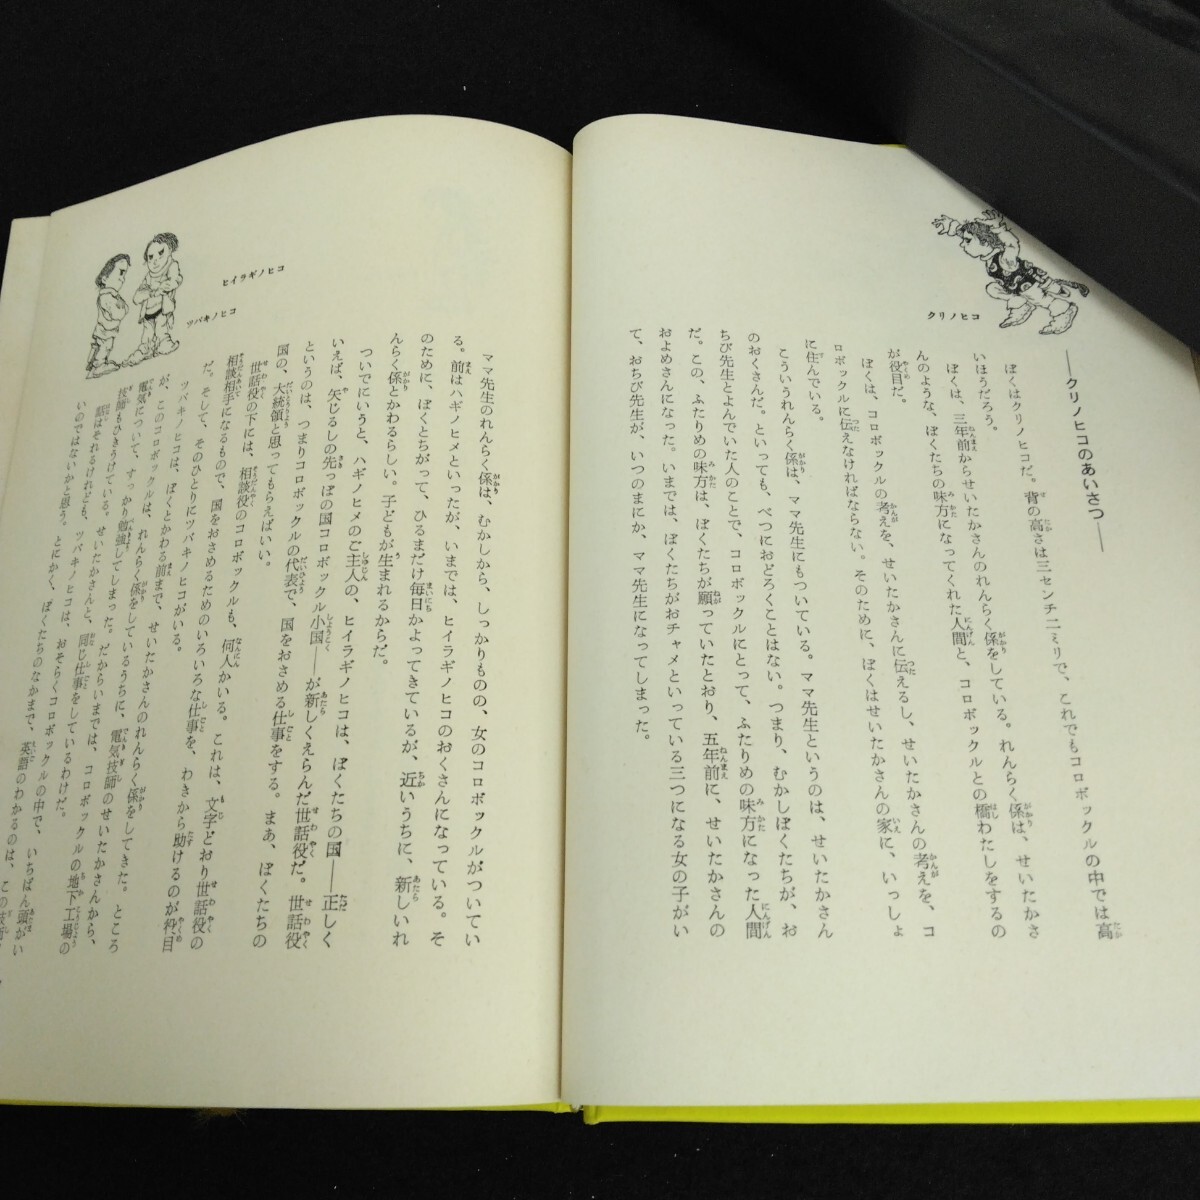 クリノヒコ
――クリノヒコのあいさつ――
ぼくはクリノヒコだ。背の高さは三センチ二ミリで、これでもコロボックルの中では高
いほうだろう。
ぼくは、三年前からせいたかさんのれんらく係をしている。れんらく係は、せいたかさ
んのような、ぼくたちの味方になってくれた人間と、コロボックルとの橋わたしをするの
が役目だ。
ぼくは、コロボックルの考えを、せいたかさんに伝えるし、せいたかさんの考えを、コ
ロボックルに伝えなければならない。そのために、ぼくはせいたかさんの家に、いっしょ
に住んでいる。
こういうれんらく係は、ママ先生にもついている。ママ先生というのは、せいたかさん
のおくさんだ。といっても、べつにおどろくことはない。つまり、むかしぼくたちが、お
ちび先生とよんでいた人のことで、コロボックルにとって、ふたりめの味方になった人間
だ。この、ふたりめの味方は、ぼくたちが願っていたとおり、五年前に、せいたかさんの
およめさんになった。いまでは、ぼくたちがおチャメといっている三つになる女の子がい
て、おちび先生が、いつのまにか、ママ先生になってしまった。
ママ先生のれんらく係は、むかしから、しっかりものの、女のコロボックルがついてい
る。前はハギノヒメといったが、いまでは、ヒイラギノヒコのおくさんになっている。そ
のために、ぼくとちがって、ひるまだけ毎日かよってきているが、近いうちに、新しいれ
んらく係とかわるらしい。子どもが生まれるからだ。
ついでにいうと、ハギノヒメのご主人の、ヒイラギノヒコは、ぼくたちの国――正しく
いえば、矢じるしの先っぽの国コロボックル小国――が新しくえらんだ世話役だ。世話役
というのは、つまりコロボックルの代表で、国をおさめる仕事をする。まあ、ぼくたちの
国の、大統領と思ってもらえばいい。
ヒイラギノヒコ
世話役の下には、相談役のコロボックルも、何人かいる。これは、文字どおり世話役の
相談相手になるもので、国をおさめるためのいろいろな仕事を、わきから助けるのが役目
だ。そして、そのひとりにツバキノヒコがいる。
ツバキノヒコ
ツバキノヒコは、ぼくとかわる前まで、せいたかさんのれんらく係をしてきた。ところ
が、このコロボックルは、れんらく係をしているうちに、電気技師のせいたかさんから、
電気について、すっかり勉強してしまった。だからいまでは、コロボックルの地下工場の
技師もひきうけている。せいたかさんと、同じ仕事をしているわけだ。
話はそれるけれども、ツバキノヒコは、おそらくコロボックルの中で、いちばん頭がい
いのではないかと思う。とにかく、ぼくたちのなかまで、英語のわかるのは、この